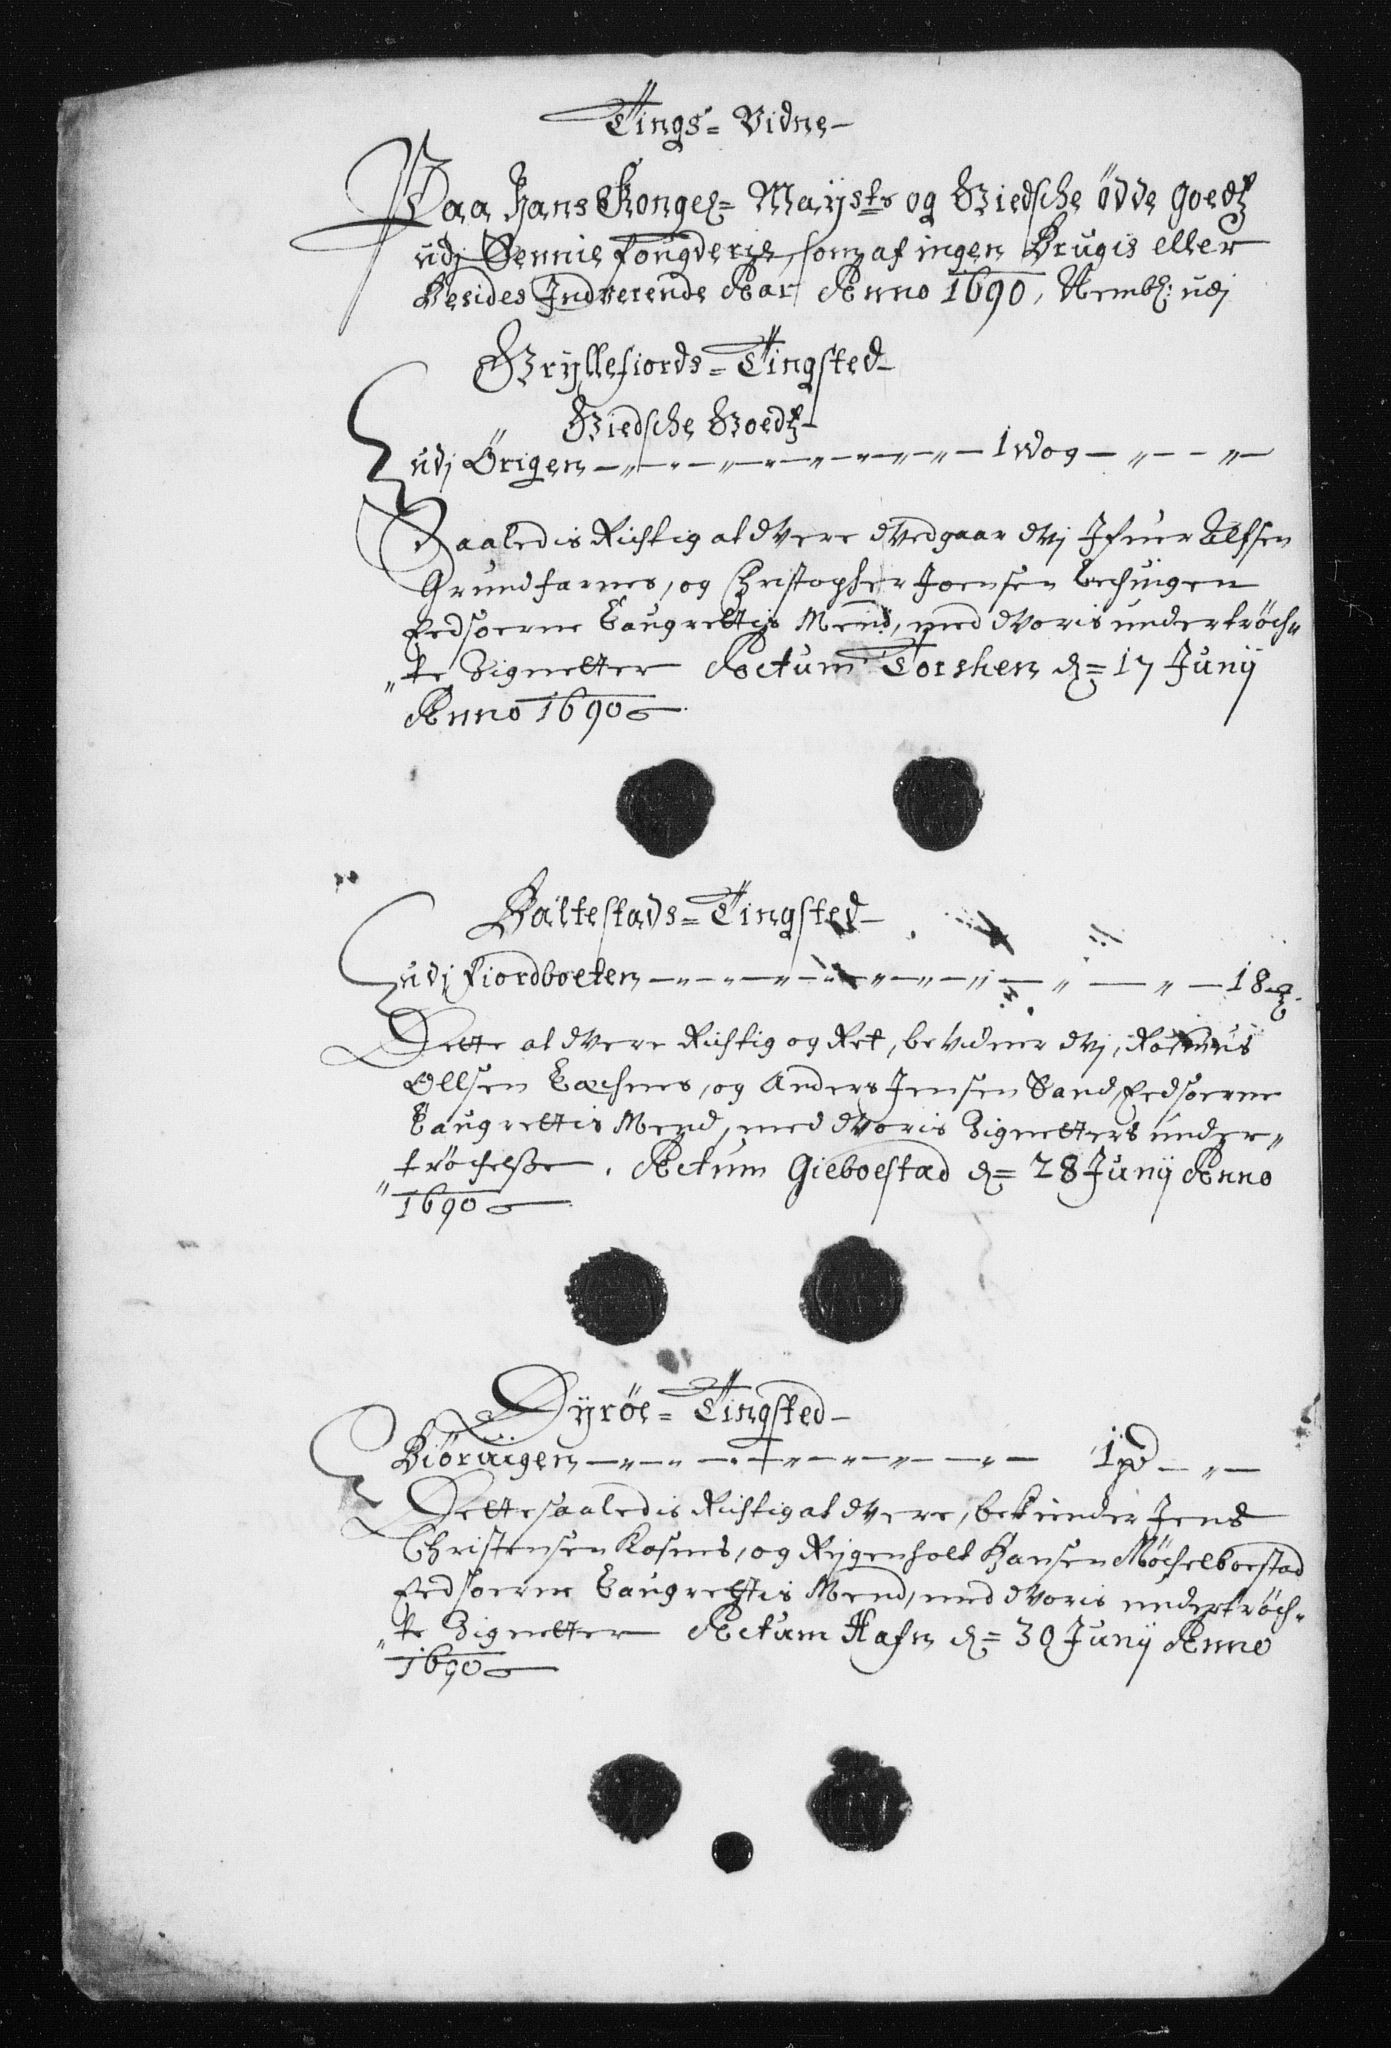 Tings= Vidne
Paa Hans Kongel= Mayst: og Giedsche ödde goedtz
udj Sennie fougderje, som af ingen Brugis eller
Besides Indverende Aar Anno 1690, Nembl: udj
Gryllefiords= Tingsted
Giedsche Goedtz
udj Örigen 1 Wog
Saaledis Richtig at dvere dvedgaar dvj Ifuer Alfsen
Grundfarnes, og Christopher Joensen
Eedsoerne Laugrettis Mend, med dvoris undertröch=
te Zignetter Actum Torshen d= 17 Junij
Anno 1690
Baltestads= Tingsted
udj Fiordbotten 18
Dette at dvere Richtig og Ret, bevidner dvj, Rasmus
Ollsen og Anders Jensen Sand Eedsoerne
Laugrettis Mend, med dvoris Zignetters under=
tröchelsse. Actum Gieboestad d= 28 Junij Anno
1690
Dyröe= Tingsted
Biörvigen 1 pd
Dette saaledis Richtig at dvere, bekiender Jens
Christensen Kasnes, og Rygenholt Hansen Möchelboestad
Eedsoerne Laugrettis Mend, med dvoris undertröch=
te Zignetter Actum Hafn d= 30 Junij Anno
1690